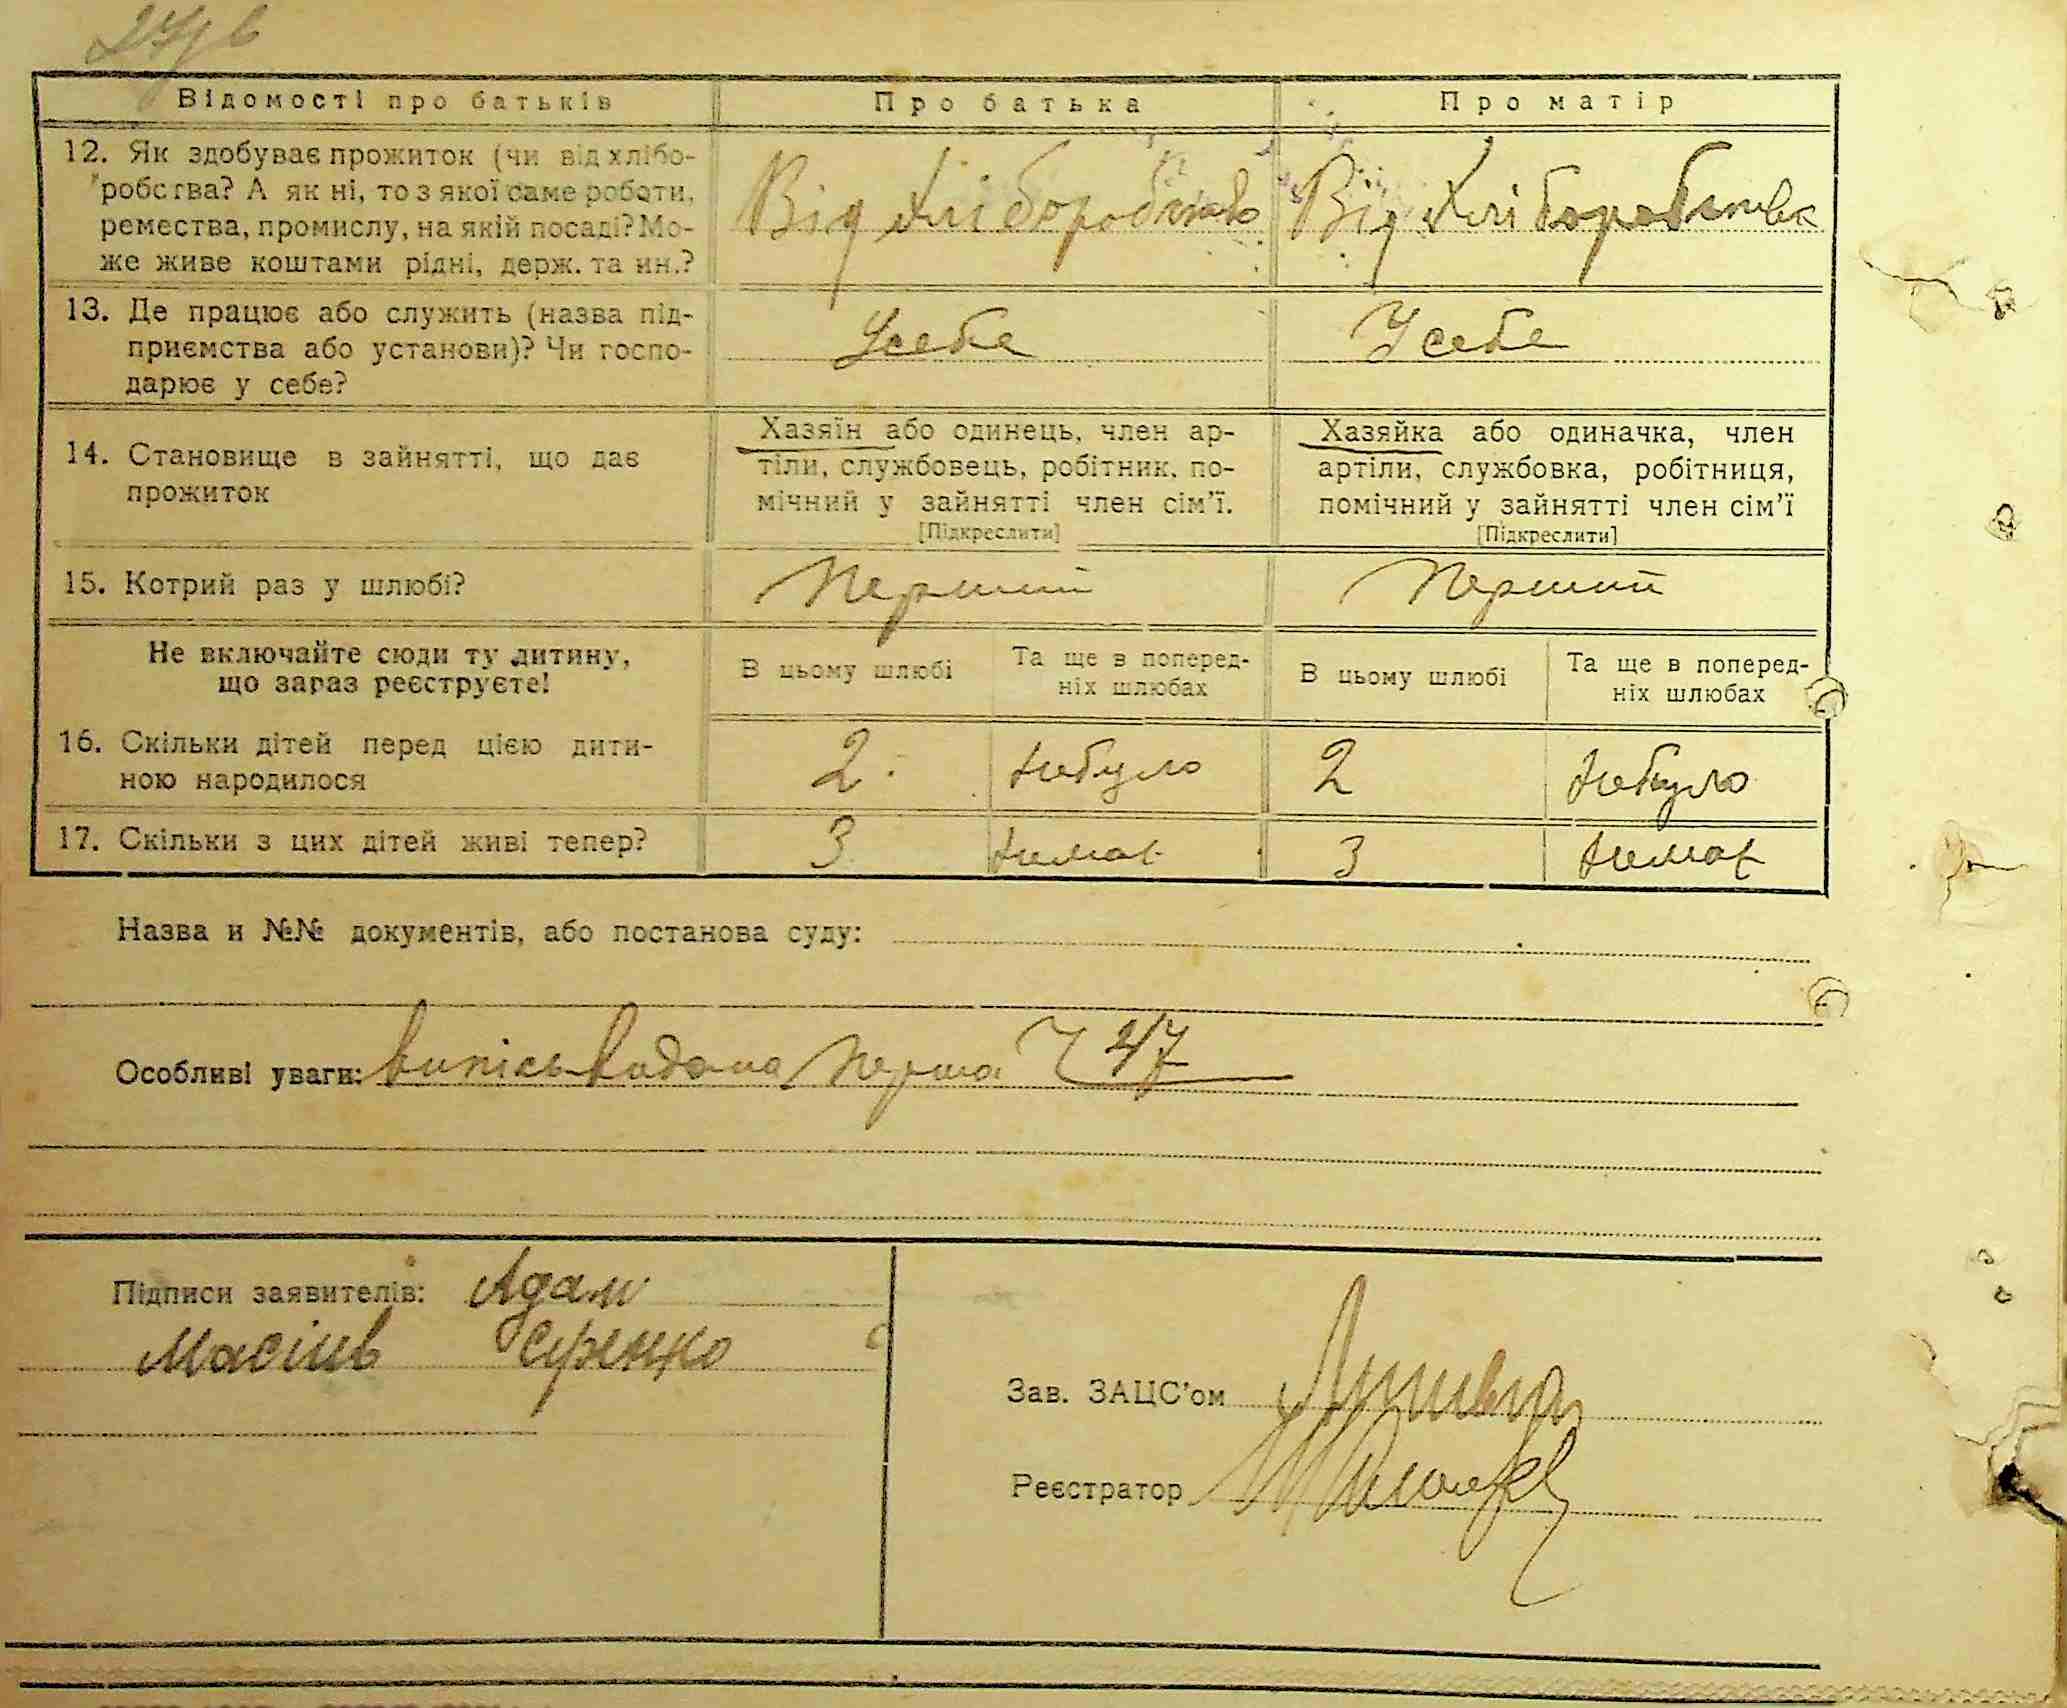 Відомості про батьків Про батька Про матір
12. Як здобуває прожиток (чи від хлібо-
робства? А як ні, то з якої саме роботи,
ремества, промислу, на якій посаді? Мо-
же живе коштами рідні, держ. та ин.?
Від хліборобства Від хліборобства
13. Де працює або служить (назва під-
приємства або установи)? Чи госпо-
дарює у себе?
Усебе Усебе
14. Становище в зайнятті, що дає
прожиток
Хазяїн або одинець, член ар-
тіли, службовець, робітник, по-
мічний у зайнятті член сім'ї.
[Підкреслити]
Хазяйка або одиначка, член
артіли, службовка, робітниця,
помічний у зайнятті член сім'ї
[Підкреслити]
15. Котрий раз у шлюбі? Перший Перший
Не включайте сюди ту дитину,
що зараз реєструєте!
В цьому шлюбі
Та ще в поперед-
ніх шлюбах
В цьому шлюбі
Та ще в поперед-
ніх шлюбах
16. Скільки дітей перед цією дити-
ною народилося
2 небуло 2 небуло
17. Скільки з цих дітей живі тепер? 3 3
Назва и №№ документів, або постанова суду:
Особливі уваги: Випісь видана перша Ч 47
Підписи заявителів: Адам
Сиренко
Зав. ЗАЦС'ом
Реєстратор